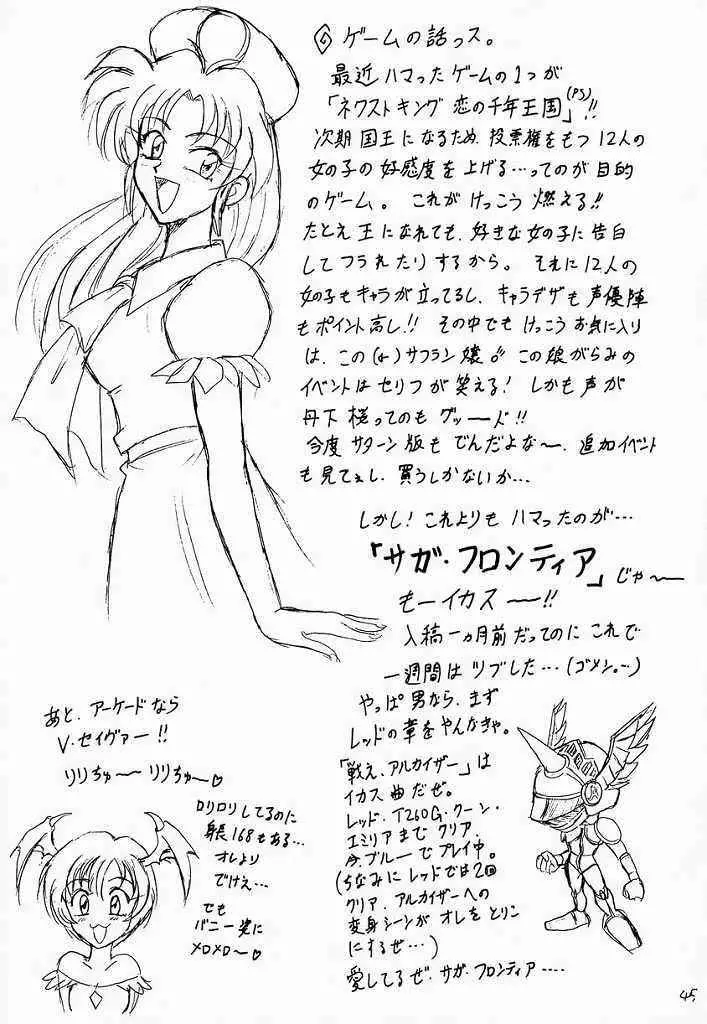 ゲームの話っス。
最近ハマったゲームの1つが
「ネクストキング 恋の千年王国」(PS)!!
次期国王になるため、投票権をもつ12人の
女の子の好感度を上げる…ってのが目的
のゲーム。これがけっこう燃える!!
たとえ王になれても、好きな女の子に告白
してフラれたりするから。それに12人の
女の子もキャラが立ってるし、キャラデザも声優陣
もポイント高し!! その中でもけっこうお気に入り
は、この(←)サフラン嬢。この娘がらみの
イベントはセリフが笑える! しかも声が
丹下桜ってのもグッーード!!
今度サターン版もでんだよな〜、追加イベント
も見てぇし、買うしかないか…
しかし! これよりもハマったのが…
「サガ・フロンティア」じゃ〜
もーイカス〜!!
入稿一ヵ月前だってのにこれで
一週間はツブした…(ゴメン…)
やっぱ男なら、まず
レッドの章をやんなきゃ。
「戦え、アルカイザー」は
イカス曲だぜ。
レッド、T260G、クーン、
エミリアまでクリア、
今、ブルーでプレイ中。
(ちなみにレッドでは2回
クリア、アルカイザーへの
変身シーンがオレをとりこ
にするぜ…)
愛してるぜ、サガ・フロンティア……
あと、アーケードなら
V.セイヴァー!!
リリちゅ〜リリちゅ〜♡
ロリロリしてるのに
身長168もある…
オレより
でけえ…
でも
バニー姿に
メロメロ〜♡
45.